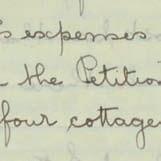 s expenses
the Petition
four cottage